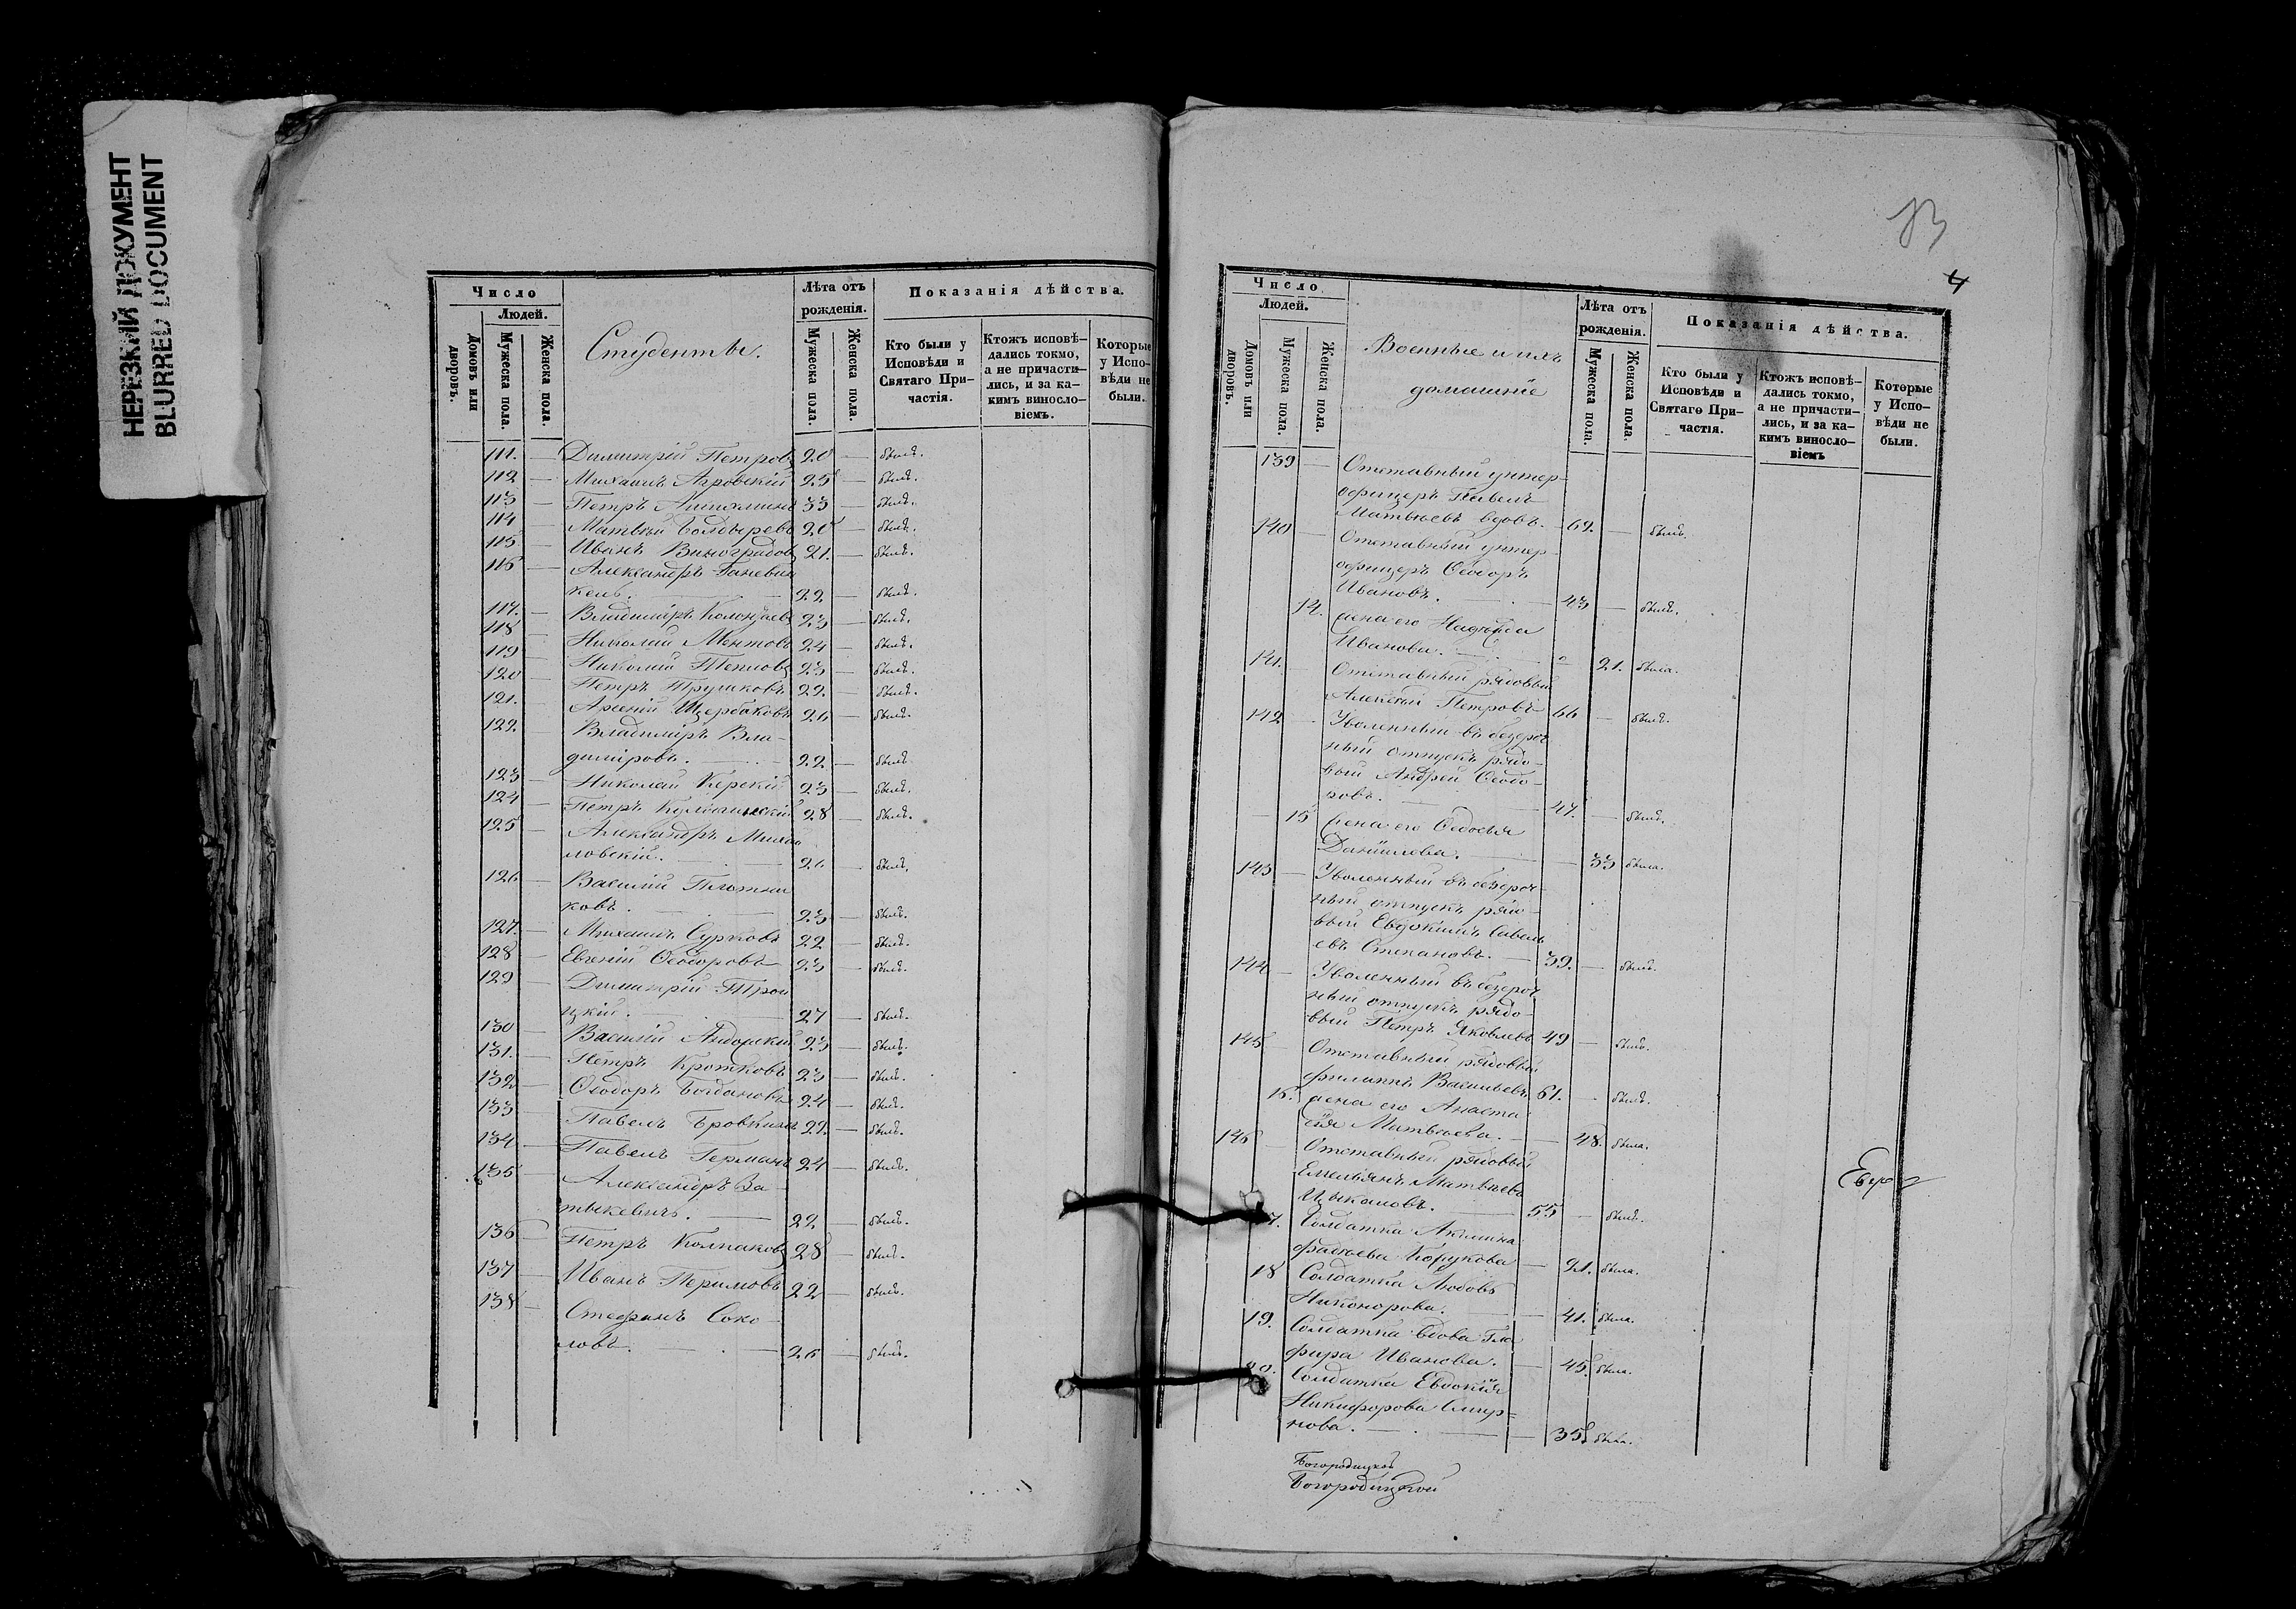 НЕРЕЗКИЙ ДОКУМЕНТ
BLURRED DOCUMENT
Число
Людей.
Домовъ или дворовъ.
Мужеска пола.
Женска пола.
Студенты.
Лѣта отъ рожденія.
Мужеска пола.
Женска пола.
Показанія дѣйства.
Кто были у Исповѣди и Святаго При-частія.
Ктожъ исповѣ-дались токмо, а не причасти-лись, и за ка-кимъ винословіемъ.
Которые у Испо-вѣди не были.
111. — Димитрій Петровъ 20 — былъ.
112 — Михаилъ 25 — былъ.
113 — Петръ 33 — былъ.
114 — Матвѣй Болдыревъ 20 — былъ.
115 — Иванъ Виноградовъ 21. — былъ.
116 — Александръ Ганевин
кель. — 22 — былъ.
117. — Владиміръ 23 — былъ.
118 Николай 24 — былъ.
119 Николай Тепловъ 23 — былъ.
120 — Петръ Трушковъ 22. — былъ.
121. — Арсеній Щербаковъ 26 — былъ.
122. — Владиміръ Вла-
диміровъ. — 22. — былъ.
123 — Николай Керскій 23 — былъ.
124 — Петръ 28 — былъ.
125 — Александръ
ловскій. — 26 — былъ.
126 — Василій Плотни
ковъ. — 23 — былъ.
127. — Михаилъ Сурковъ 22 — былъ.
128 — Евгеній Ѳеодоровъ 23 — былъ.
129 — Димитрій Трои
цкій. — 27 — былъ.
130 — Василій 23 — былъ.
131. — Петръ Кротковъ 23 — былъ.
132 — Ѳеодоръ Богдановъ 24 — былъ.
133 Павелъ Бровкинъ 22. — былъ.
134 — Павелъ Германъ 24 — былъ.
135 — Александръ За-
тыкевичъ. — 22 — былъ.
136 — Петръ Колпаковъ 28 — былъ.
137 — Иванъ Перимовъ 22 — былъ.
138 — Стефанъ Соко
ловъ. — 26 — былъ.
4
Число
Людей.
Домовъ или дворовъ.
Мужеска пола.
Женска пола.
Военные и ихъ
домашніе
Лѣта отъ рожденія.
Мужеска пола.
Женска пола.
Показанія дѣйства.
Кто были у Исповѣди и Святаго При-частія.
Ктожъ исповѣ-дались токмо, а не причасти-лись, и за ка-кимъ винословіемъ
Которые у Испо-вѣди не были.
139 — Отставный унтер-
офицеръ Павелъ
Матвѣевъ вдовъ. — 62. — былъ.
140 — Отставный унтер-
офицеръ Ѳеодоръ
Ивановъ. — 43 — былъ.
14. Жена его Надежда
Иванова. — 21. была.
141. Отставный рядовый
Алексѣй Петровъ 66 — былъ.
142 — Уволенный въ безсроч
ный отпускъ рядо-
вый Андрей Ѳеодо-
ровъ. — 47. — былъ.
— 15 Жена его Ѳедосья
Даніилева. — 33 была.
143 — Уволенный въ безсроч-
ный отпускъ рядо-
вый Евдокимъ Савель
евъ Степановъ. — 39. — былъ.
144 — Уволенный въ безсроч
ный отпускъ рядо-
вый Петръ Яковлевъ 49 — былъ.
145 Отставный рядовый
Филиппъ Васильевъ 61. — былъ.
16. Жена его Анаста
сія Матвѣева. — 48. была.
146 — Отставный рядовый
Емельянъ Матвѣевъ
Цыкановъ. — 55 — былъ.
7. Солдатка Акилина
Фадѣева — 21. была.
18 Солдатка Любовь
Никонорова. — 41. была.
19. Солдатка вдова Гла
фира Иванова. — 45. была.
20. Солдатка Евдокія
Никифорова Смир=
нова. — 35. была.
Богородицкой
Богородицкой